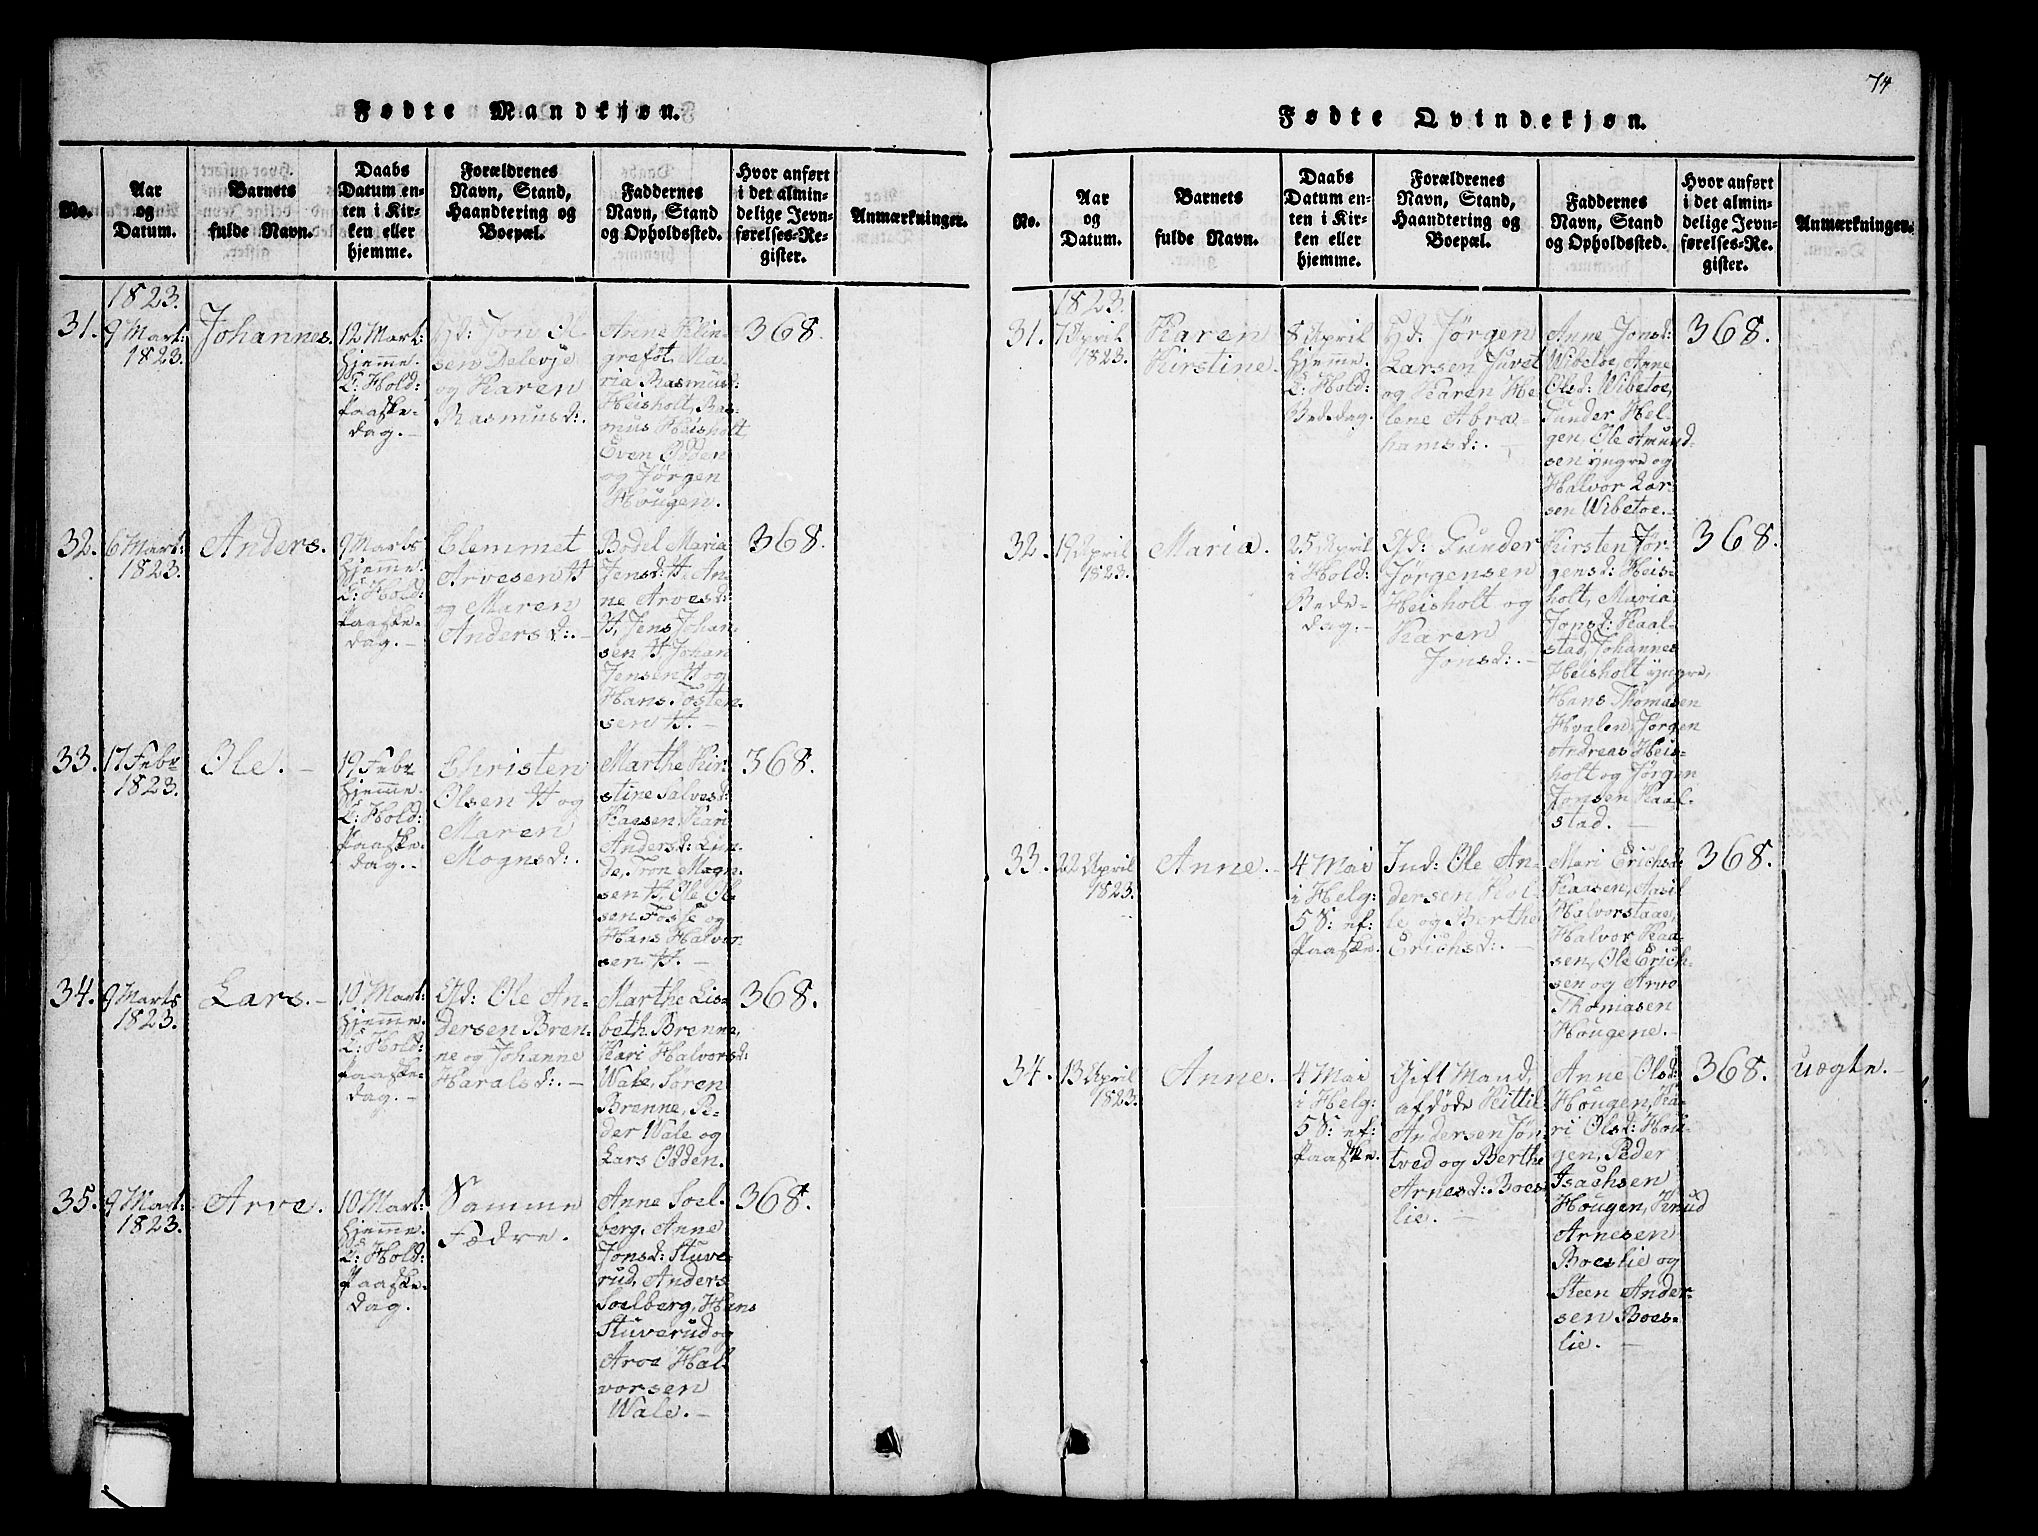 74
Fødte Mandkjøn.
No.
Aar
og
Datum.
Barnets
fulde Navn.
Daabs
Datum en-
ten i Kir-
ken eller
hjemme.
Forældrenes
Navn, Stand,
Haandtering og
Boepæl.
Faddernes
Navn, Stand
og Opholdssted.
Hvor anført
i det almin-
delige Jevn-
førelses-Re-
gister.
Anmærkninger.
31.
1823.
9 Mart:
1823.
Johannes.
12 Mart:
hjemme.
i Hold:
Paaske-
dag.
Gd: Jon Ol-
sen Delevje
og Karen
Rasmusd:.
Anne Klin-
grefot, Ma-
ria Rasmusd:
Heisholt, Ras-
mus Heisholt
Even Odden
og Jørgen
Hougen.
368.
32.
6 Mart:
1823.
Anders.
9 Marts
hjemme.
i Hold:
Paaske-
dag.
Clemmet
Arvesen H
og Maren
Andersd:.
Bodel Maria
Jensd: H, An-
ne Arvesd:
H, Jens Johan-
sen H Johan
Jensen H og
Hans Tosten-
sen H.
368.
33.
17 Febr
1823.
Ole.
19 Febr
hjemme.
i Hold:
Paaske-
dag.
Christen
Olsen H og
Maren
Mognsd:.
Marthe Kir-
stine Salvesd:
Kaasen, Kari
Andersd: Lun-
de, Tron Mogn-
sen H, Ole Ol-
sen Fosse og
Hans Halvor-
sen H.
368.
34.
9 Marts
1823.
Lars.
10 Mart:
hjemme.
i Hold:
Paaske-
dag.
Gd: Ole An-
dersen Bren-
ne og Johanne
Haralsd:.
Marthe Lis-
beth Brenne,
Kari Halvorsd:
Wale, Søren
Brenne, Pe-
der Wale og
Lars Odden.
368.
35.
9 Mart:
1823.
Arve.
10 Mart:
hjemme.
i Hold:
Paaske-
dag.
Samme
Fædre.
Anne Soel-
berg, Anne
Jonsd: Stuve-
rud, Anders
Soelberg, Hans
Stuverud og
Arve Hal-
vorsen
Wale.
368.
Fødte Qvindekjøn.
No.
Aar
og
Datum.
Barnets
fulde Navn.
Daabs
Datum en-
ten i Kir-
ken eller
hjemme.
Forældrenes
Navn, Stand,
Haandtering og
Boepæl.
Faddernes
Navn, Stand
og Opholdssted.
Hvor anført
i det almin-
delige Jevn-
førelses-Re-
gister.
Anmærkninger.
31.
1823.
7 April
1823.
Karen
Kirstine.
8 April
hjemme.
i Hold:
Bededag.
Gd: Jørgen
Larsen Juvet
og Karen He-
lene Abra-
hamsd:.
Anne Jonsd:
Wibetoe, Anne
Olsd: Wibetoe,
Gunder Hel-
gen, Ole Amund-
sen yngre og
Halvor Lar-
sen Wibetoe.
368.
32.
19 April
1823.
Maria.
25 April
i Hold:
Bede-
dag.
Gd: Gunder
Jørgensen
Heisholt og
Karen
Jonsd:.
Kirsten Jør-
gensd: Heis-
holt, Maria
Jonsd: Kaal-
stad, Johannes
Heisholt yngre,
Hans Thomasen
Hvalen, Jørgen
Andreas Heis-
holt og Jørgen
Jonsen Kaal-
stad.
368.
33.
22 April
1823.
Anne.
4 Mai
i Helg:
5 S: ef:
Paaske.
Ind: Ole An-
dersen Hol-
le og Berthe
Erichsd:.
Mari Erichsd:
Kaasen, Aasil
Halvorstaae,
Halvor Kaa-
sen, Ole Erich-
sen og Arve
Thomasen
Hougene.
368.
34.
13 April
1823.
Anne.
4 Mai
i Helg:
5 S: ef:
Paaske.
Gift Mand,
afdøde Kittil
Andersen Jøn-
tved og Berthe
Arnesd: Boes-
lie.
Anne Olsd:
Hougen, Ka-
ri Olsd: Hou-
gen, Peder
Isachsen
Hougen, Knud
Arnesen
Boeslie og
Steen Ander-
sen Boes-
lie.
368.
uægte.